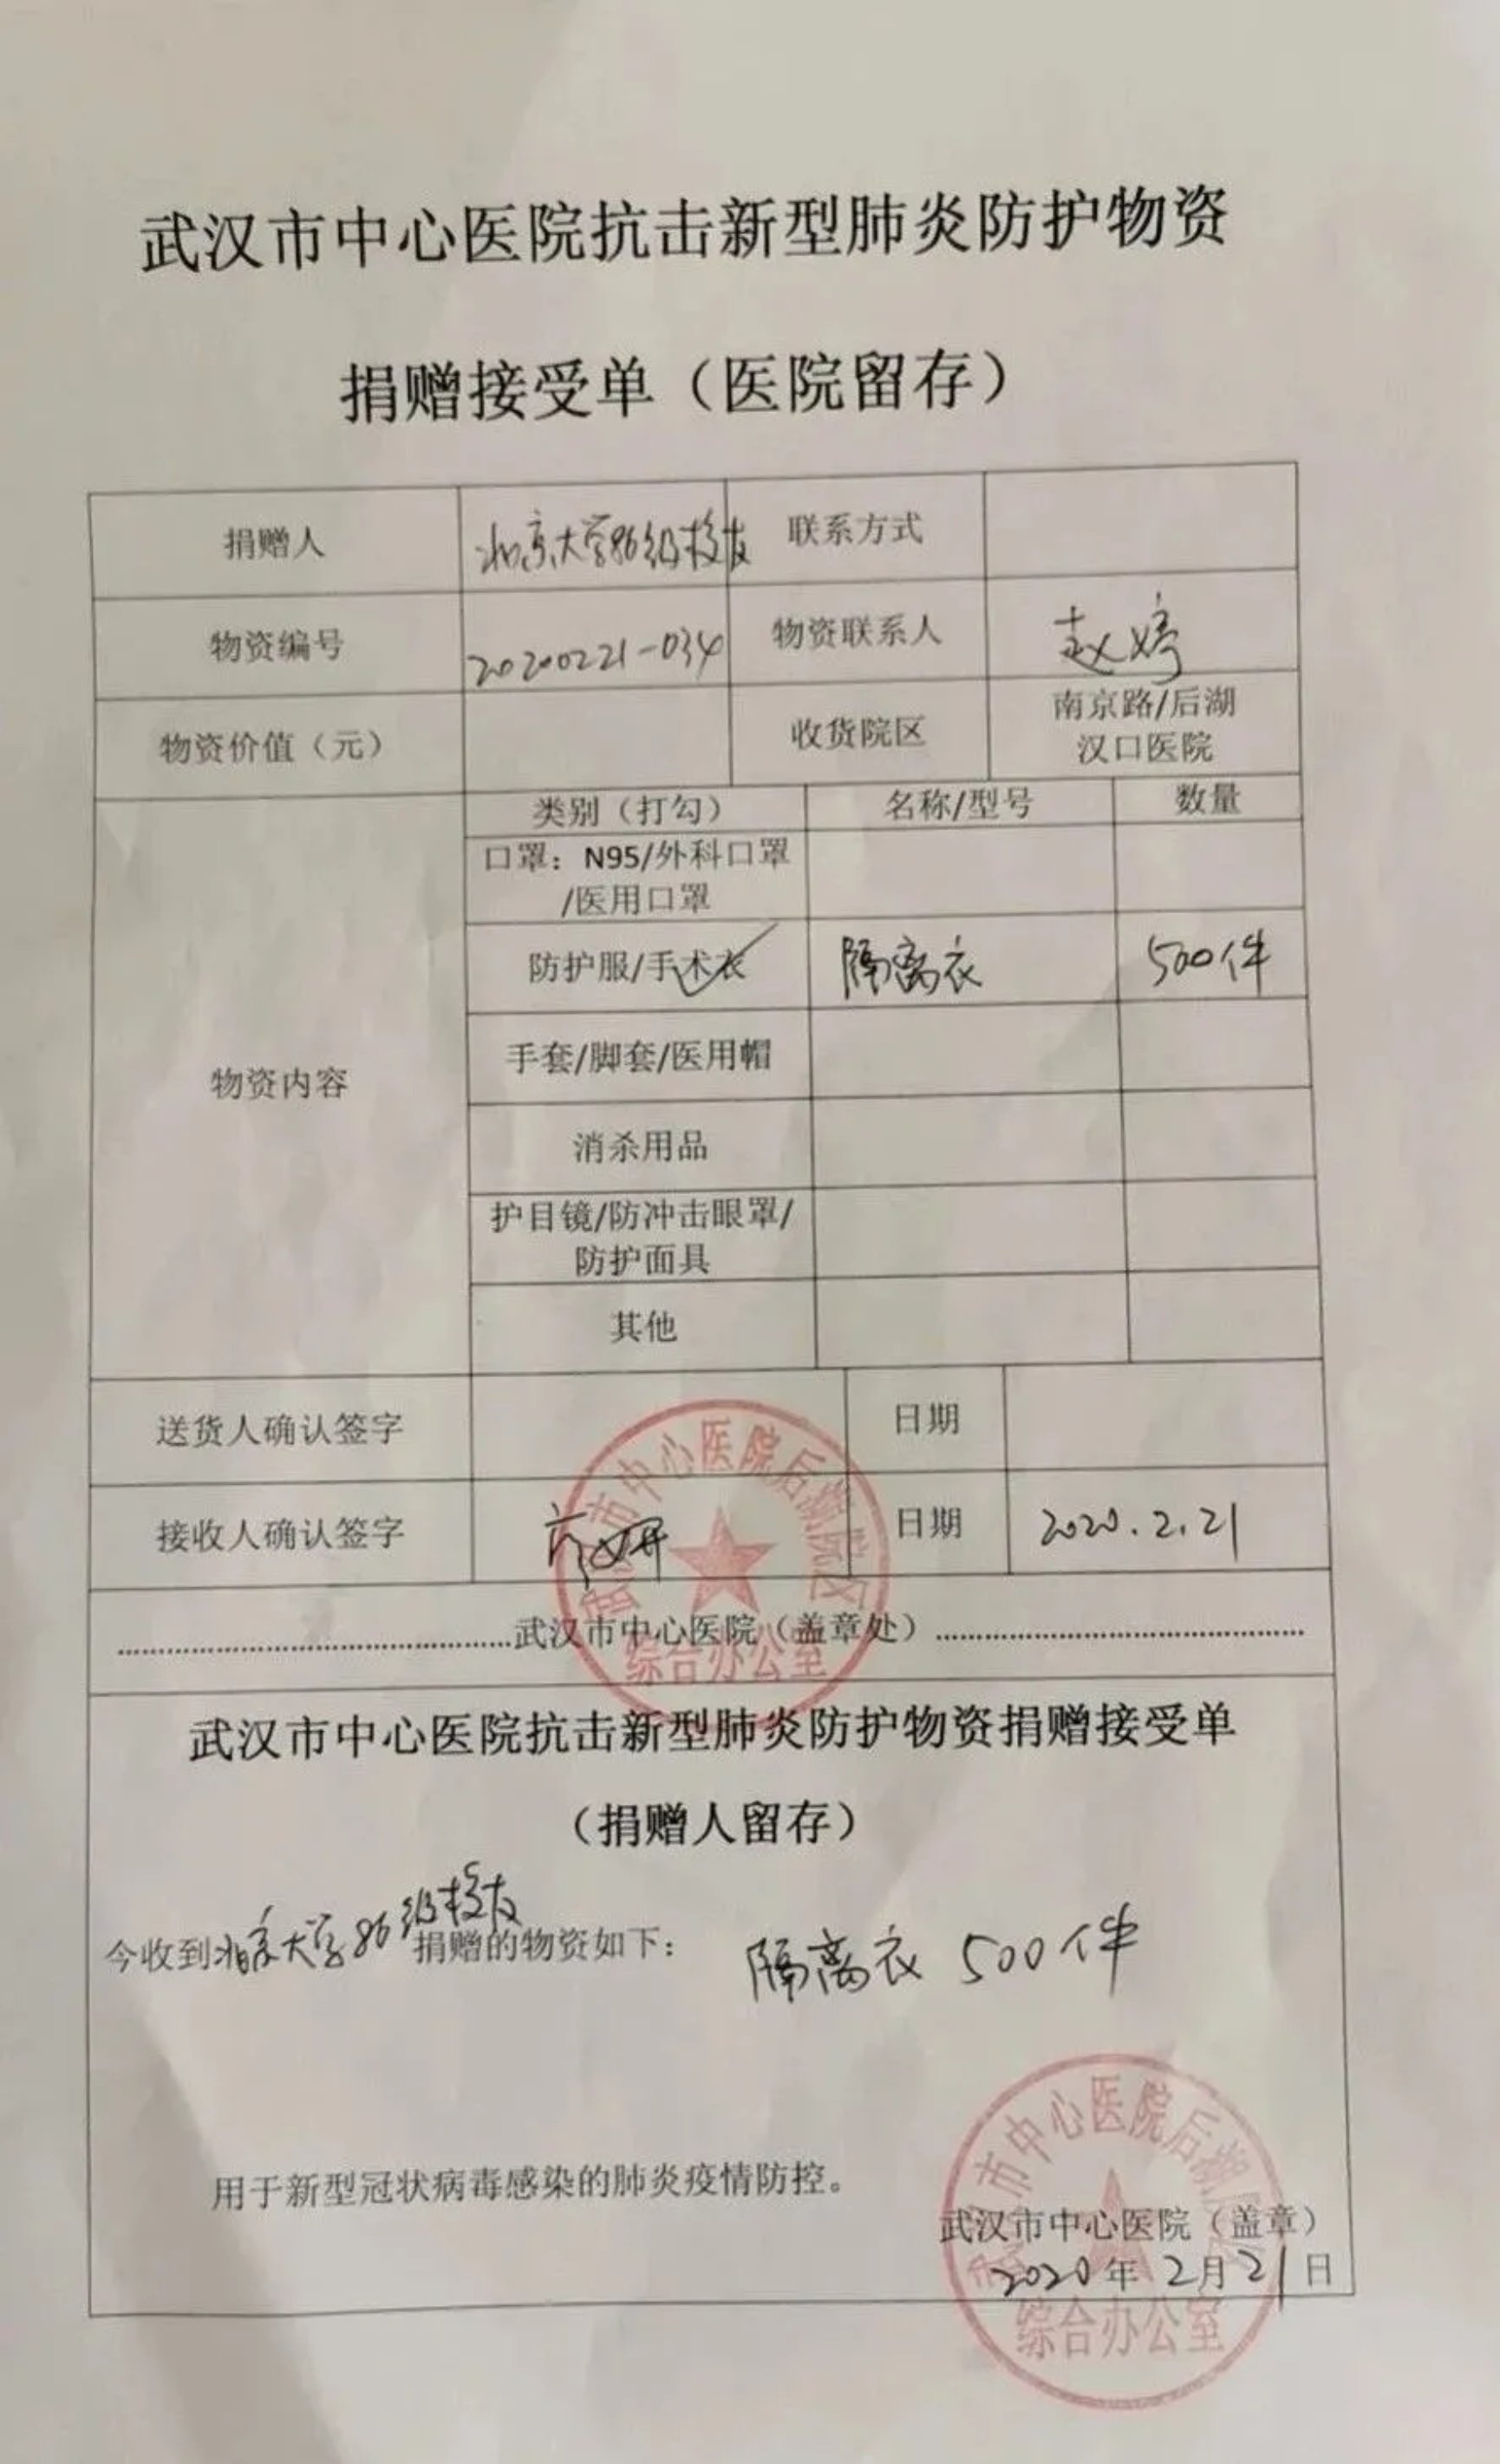 武汉市中心医院抗击新型肺炎防护物资
捐赠接受单（医院留存）
捐赠人 北京大学86级校友 联系方式
物资编号 20200221-034 物资联系人 赵婷
物资价值（元） 收货院区 南京路/后湖
汉口医院
类别（打勾） 名称/型号 数量
口罩：N95/外科口罩
/医用口罩
防护服/手术衣 隔离衣 500件
手套/脚套/医用帽
物资内容
消杀用品
护目镜/防冲击眼罩/
防护面具
其他
送货人确认签字 日期
接收人确认签字 日期 2020.2.21
武汉市中心医院后湖院区
综合办公室
武汉市中心医院（盖章处）
武汉市中心医院抗击新型肺炎防护物资捐赠接受单
（捐赠人留存）
今收到北京大学86级校友捐赠的物资如下： 隔离衣 500件
用于新型冠状病毒感染的肺炎疫情防控。
武汉市中心医院（盖章）
2020年2月21日
武汉市中心医院后湖院区
综合办公室